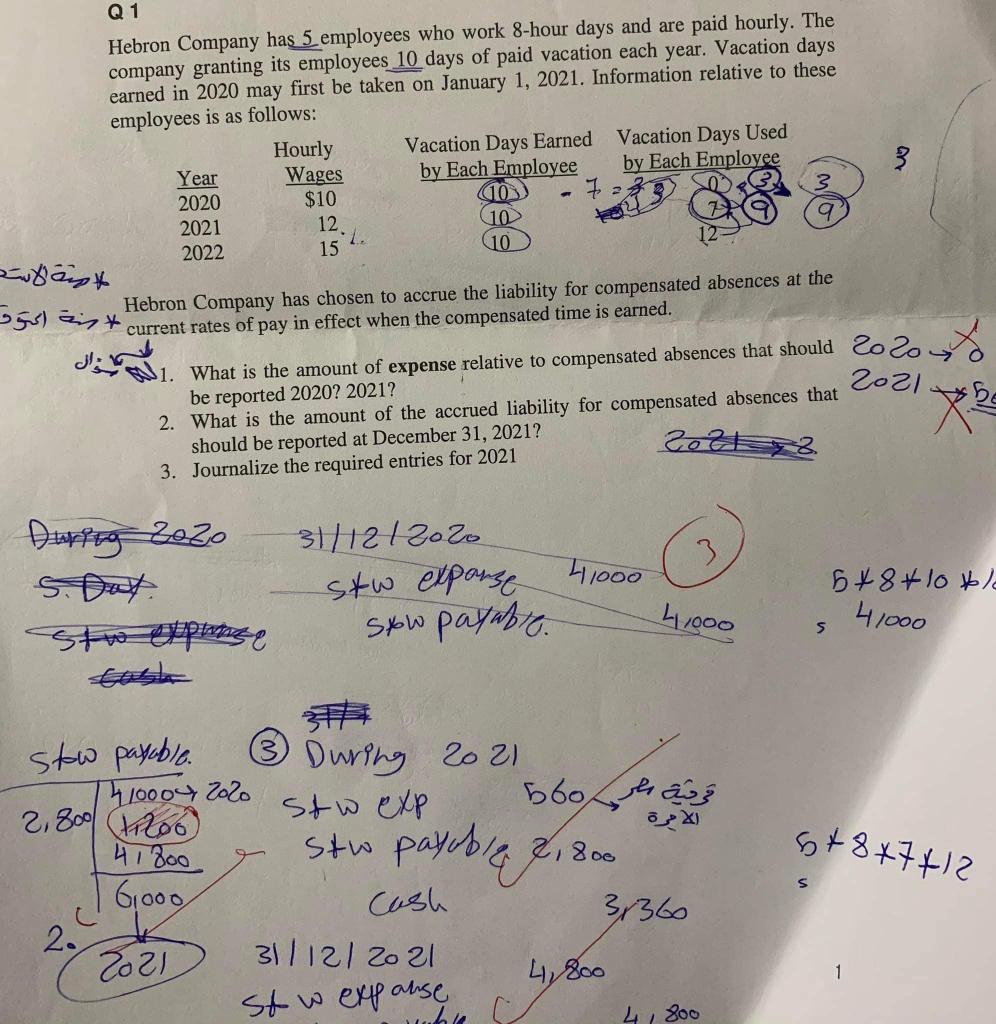 Q 1
Hebron Company has 5 employees who work 8-hour days and are paid hourly. The
company granting its employees 10 days of paid vacation each year. Vacation days
earned in 2020 may first be taken on January 1, 2021. Information relative to these
employees is as follows:
Hourly Vacation Days Earned Vacation Days Used
Year Wages by Each Employee by Each Employee
2020 $10 10 - 7 = 3 0 3 3
2021 12 10 7 9 9
2022 15 10 12
3
Hebron Company has chosen to accrue the liability for compensated absences at the
current rates of pay in effect when the compensated time is earned.
1. What is the amount of expense relative to compensated absences that should
be reported 2020? 2021?
2020 → 0
2021 →
2. What is the amount of the accrued liability for compensated absences that
should be reported at December 31, 2021?
3. Journalize the required entries for 2021
2021 → 3
During 2020
31/12/2020
3
S. Day.
S+w expanse 4,000
5*8*10*10
S+w expanse
S+w payable. 4,000
4,000
Cash
S+w payable.
4,000 → 2020
2,800
1,200
4,800
6,000
2.
2021
3 During 2021
S+w exp 560
S+w payable 2,800
5*8*7*12
Cash 3,360
31/12/2021
S+w expanse 4,800
4,800
1